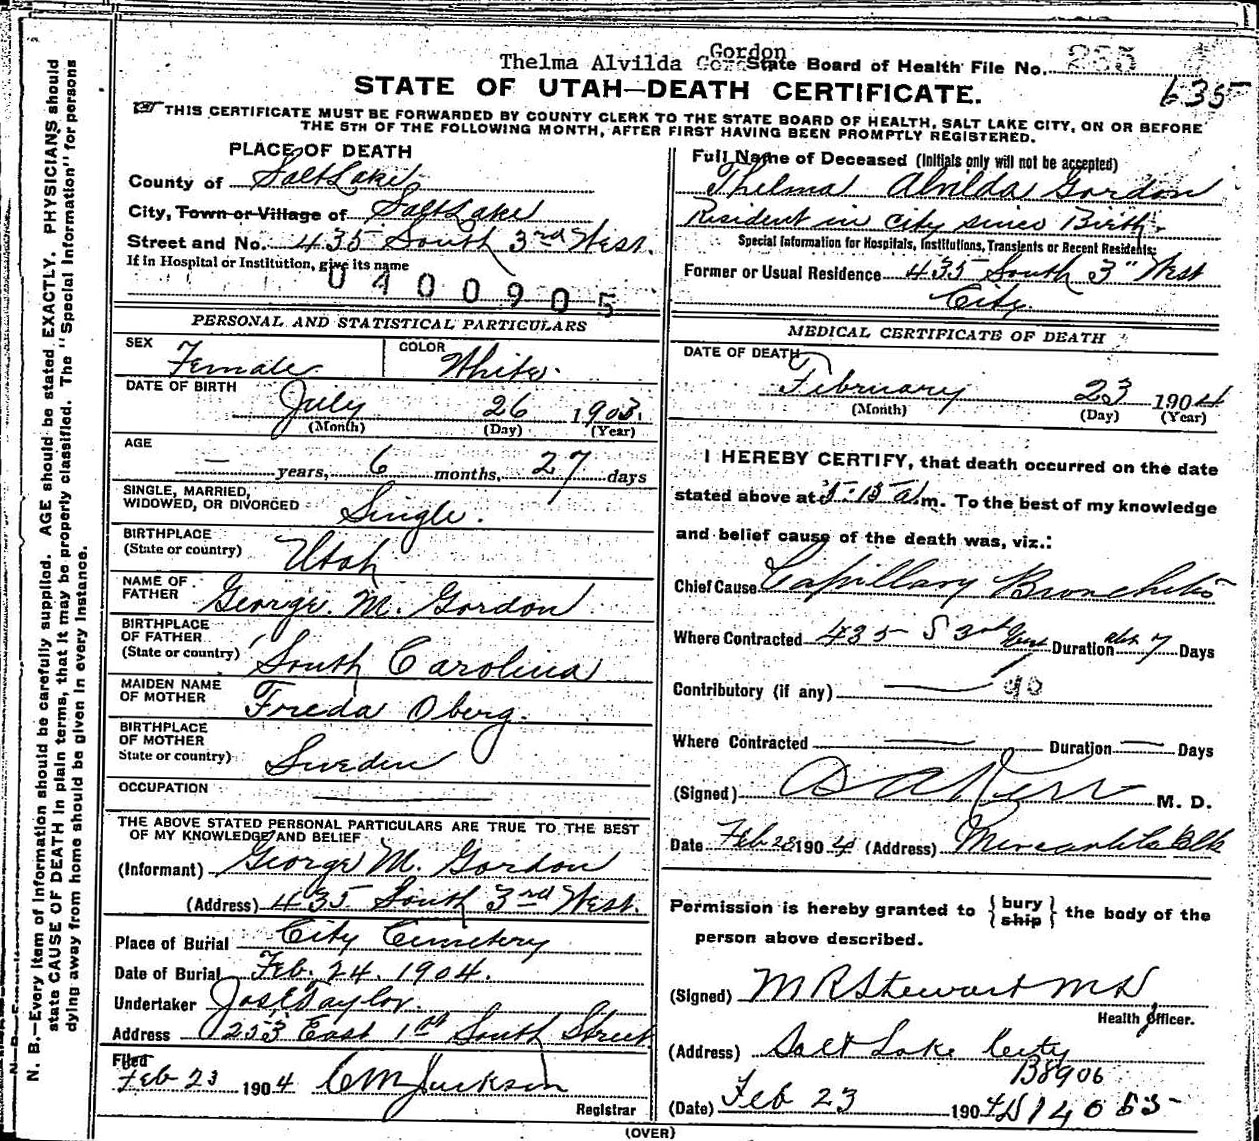 Thelma Alvilda Gordon State Board of Health File No. 235
635
STATE OF UTAH—DEATH CERTIFICATE.
THIS CERTIFICATE MUST BE FORWARDED BY COUNTY CLERK TO THE STATE BOARD OF HEALTH, SALT LAKE CITY, ON OR BEFORE
THE 5TH OF THE FOLLOWING MONTH, AFTER FIRST HAVING BEEN PROMPTLY REGISTERED.
PLACE OF DEATH
County of Salt Lake
City, Town or Village of Salt Lake
Street and No. 435 South 3rd West.
If in Hospital or Institution, give its name
0400905
PERSONAL AND STATISTICAL PARTICULARS
SEX Female COLOR White.
DATE OF BIRTH July 26 1903.
(Month) (Day) (Year)
AGE — years, 6 months, 27 days
SINGLE, MARRIED,
WIDOWED, OR DIVORCED Single.
BIRTHPLACE
(State or country) Utah
NAME OF
FATHER George M. Gordon
BIRTHPLACE
OF FATHER
(State or country) South Carolina
MAIDEN NAME
OF MOTHER Freda Oberg.
BIRTHPLACE
OF MOTHER
State or country) Sweden
OCCUPATION
THE ABOVE STATED PERSONAL PARTICULARS ARE TRUE TO THE BEST
OF MY KNOWLEDGE AND BELIEF
(Informant) George M. Gordon
(Address) 435 South 3rd West.
Place of Burial City Cemetery
Date of Burial Feb. 24. 1904.
Undertaker Jos E Taylor.
Address 253 East 1st South Street
Filed
Feb 23 1904 C M Jackson
Registrar
Full Name of Deceased (Initials only will not be accepted)
Thelma Alvilda Gordon
Resident in city since Birth.
Special Information for Hospitals, Institutions, Transients or Recent Residents:
Former or Usual Residence 435 South 3" West
City.
MEDICAL CERTIFICATE OF DEATH
DATE OF DEATH
February 23 1904
(Month) (Day) (Year)
I HEREBY CERTIFY, that death occurred on the date
stated above at 5-15 a m. To the best of my knowledge
and belief cause of the death was, viz.:
Chief Cause Capillary Bronchitis
Where Contracted 435 S 3rd West Duration abt 7 Days
Contributory (if any) — 90
Where Contracted — Duration — Days
(Signed) Kerr M. D.
Date Feb 1904 (Address) Mercantile Blk
Permission is hereby granted to { bury ship } the body of the
person above described.
(Signed) M R Stewart M D
Health Officer.
(Address) Salt Lake City
B8906
(Date) Feb 23 1904
(OVER)
N. B.—Every item of information should be carefully supplied. AGE should be stated EXACTLY. PHYSICIANS should
state CAUSE OF DEATH in plain terms, that it may be properly classified. The "Special Information" for persons
dying away from home should be given in every instance.